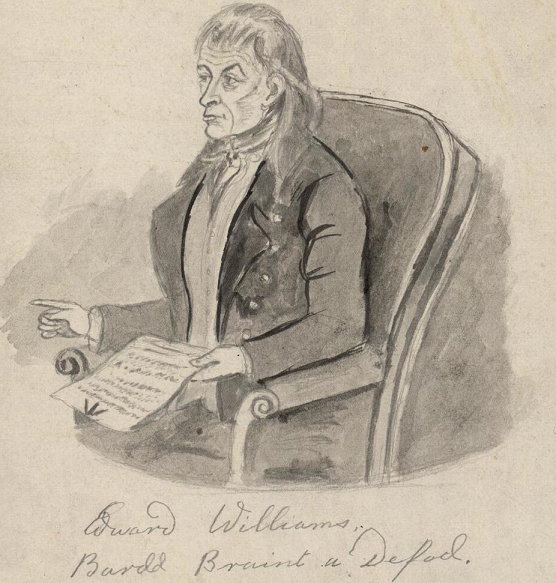 Edward Williams,
Bardd Braint a Defod.